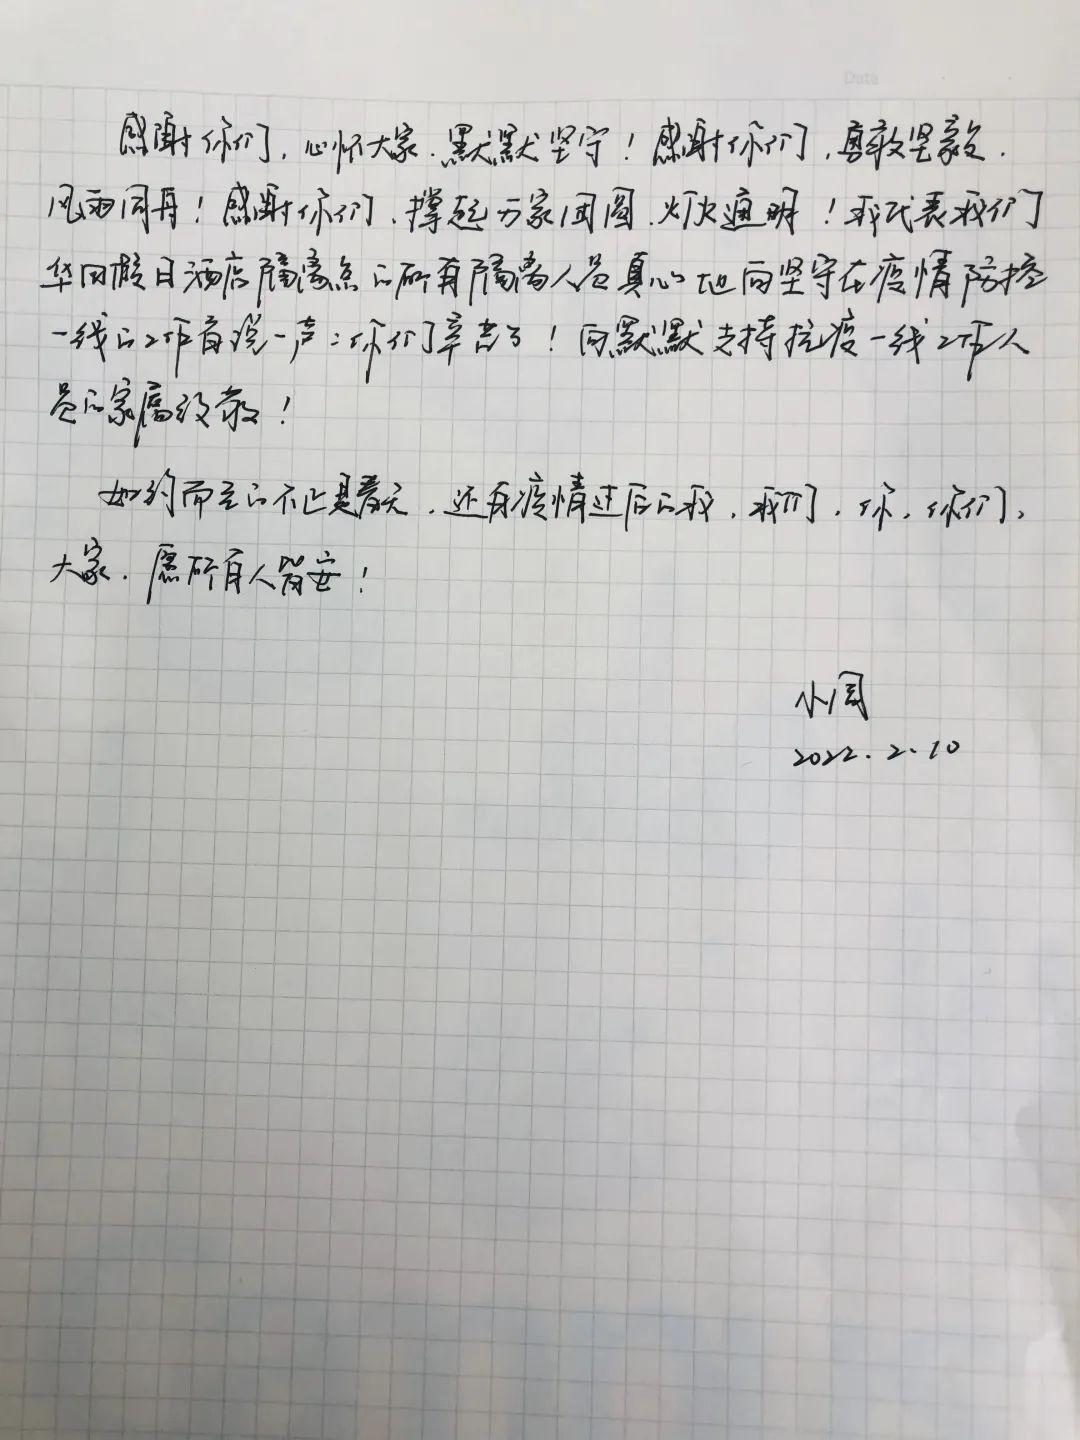 Date
感谢你们，心怀大家，默默坚守！感谢你们，勇敢坚毅，
风雨同舟！感谢你们，撑起万家团圆，灯火通明！我代表我们
华田假日酒店隔离点的所有隔离人员真心地向坚守在疫情防控
一线的工作者说一声：你们辛苦了！向默默支持抗疫一线工作人
员的家属致敬！
如约而至的不止是春天，还有疫情过后的我，我们，你，你们，
大家，愿所有人皆安！
小周
2022.2.10